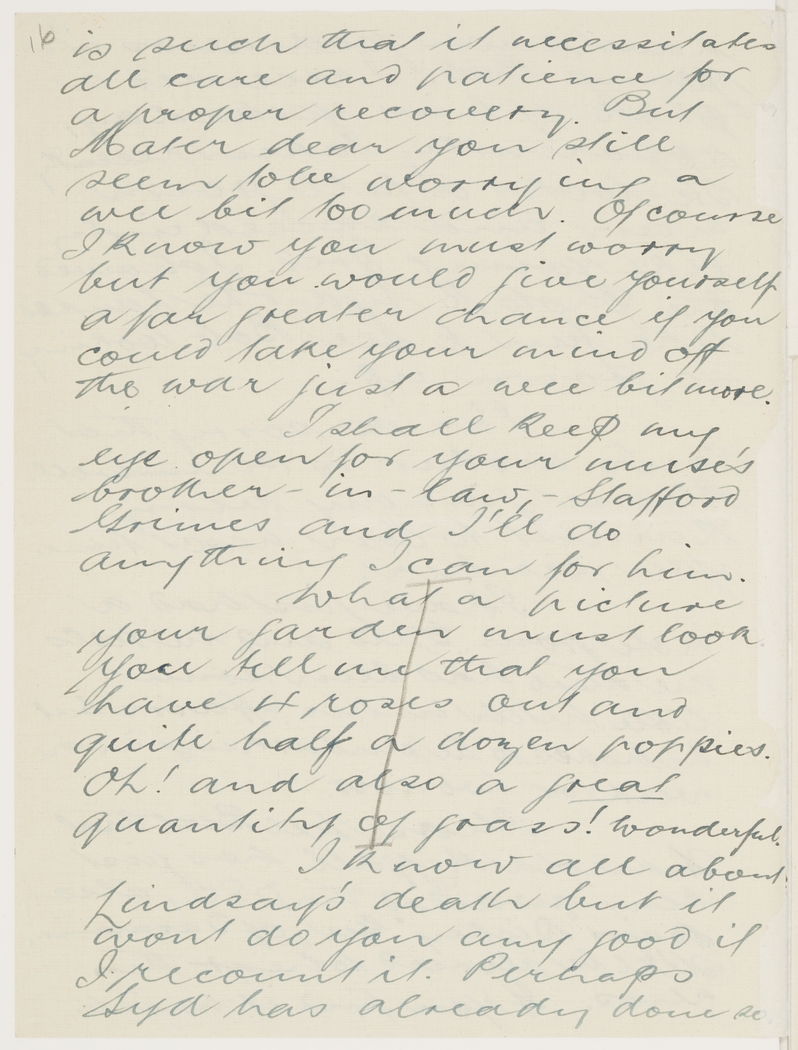 16
is such that it necessitates
all care and patience for
a proper recovery. But
Mater dear you still
seem to be worrying a
wee bit too much. Of course
I know you must worry
but you would give yourself
a far greater chance if you
could take your mind off
the war just a wee bit more.
I shall keep my
eye open for your nurse's
brother-in-law, - Stafford
Grimes and I'll do
anything I can for him.
What a picture
your garden must look
You tell me that you
have 4 roses out and
quite half a dozen poppies.
Oh! and also a great
quantity of grass! Wonderful.
I know all about
Lindsay's death but it
wont do you any good if
I recount it. Perhaps
Syd has already done so